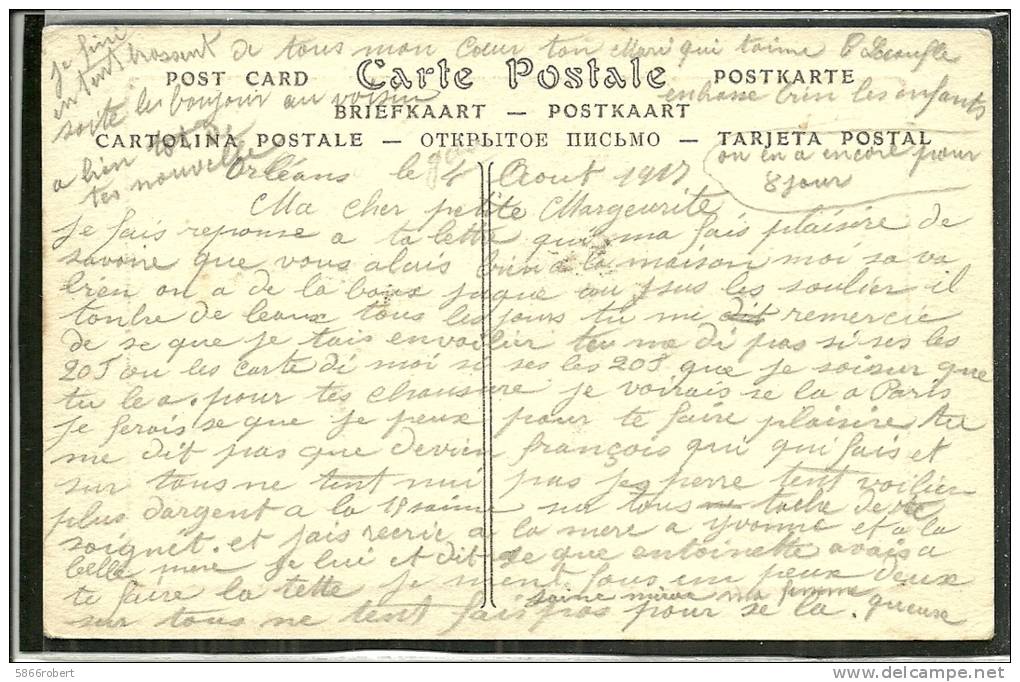 je fini
en tent brossent de tous mon Coeur ton Mari qui taime
POST CARD Carte Postale POSTKARTE
soite le boujour au voisin
enbrasse bien les enfants
BRIEFKAART — POSTKAART
CARTOLINA POSTALE — ОТКРЫТОЕ ПИСЬМО — TARJETA POSTAL
a bien
tes nouvelle
on en a encore pour
8 jour
Orléans le 4 Aout 1917
Ma cher petite Margeurite
Je fais reponse a ta lettre qui ma fais plaisire de
savoire que vous alais bien a la maison moi sa va
bien on a de la boux juque au sus les soulier il
tonbe de leaux tous les jours tu me dit remercie
de se que je tais envoilier tu me di pas si ses les
20f ou les carte di moi si ses les 20f que je soisur que
tu le a. pour tes chaussure je voirais se la a Paris
je ferais se que je peux pour te faire plaisire tu
me dit pas que devien françois qui qui fais et
sur tous ne tent nui pas je perre tent voilier
plus dargent a la 18 saine sur tous tache de te
soignét. et fais recrir a la mere a yvonne et a la
belle mere je lui et dit se que antoinette avais a
te faire la tette je ment fous un peux deux
saine mieux ma femme
sur tous ne tent fais pas pour se la. queuse
5866robert
www.delcampe.net